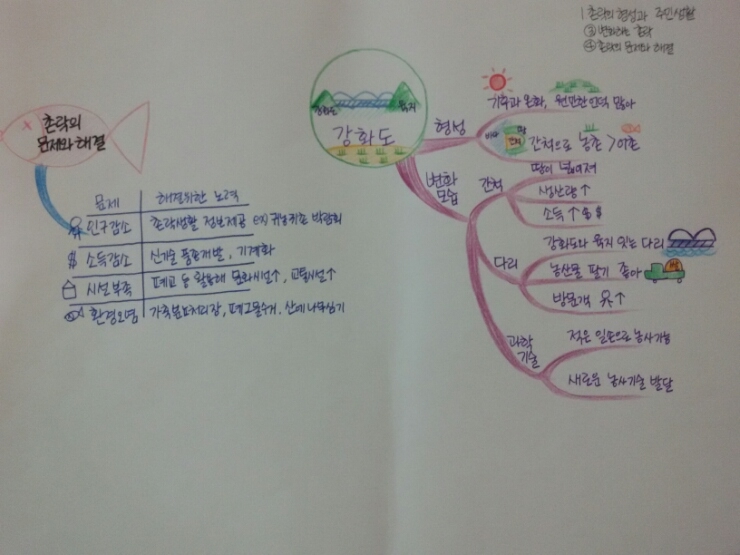 1 촌락의 형성과 주민생활
③ 변화하는 촌락
④ 촌락의 문제와 해결
촌락의
문제와 해결
문제 해결위한 노력
인구감소 촌락생활 정보제공 ex) 귀농귀촌 박람회
소득감소 신기술 품종개발, 기계화
시설부족 폐교 등 활용해 문화시설↑, 교통시설↑
환경오염 가축분뇨처리장, 폐그물수거, 산에 나무심기
강화도 육지
강화도
형성
기후과 온화, 원만한 언덕 많아
바다 땅
간척으로 농촌 > 어촌
변화
모습
간척
땅이 넓어져
생산량 ↑
소득 ↑ $ $
다리
강화도와 육지 잇는 다리
농산물 팔기 좋아
방문객 ↑
과학
기술
적은 일손으로 농사가능
새로운 농사기술 발달